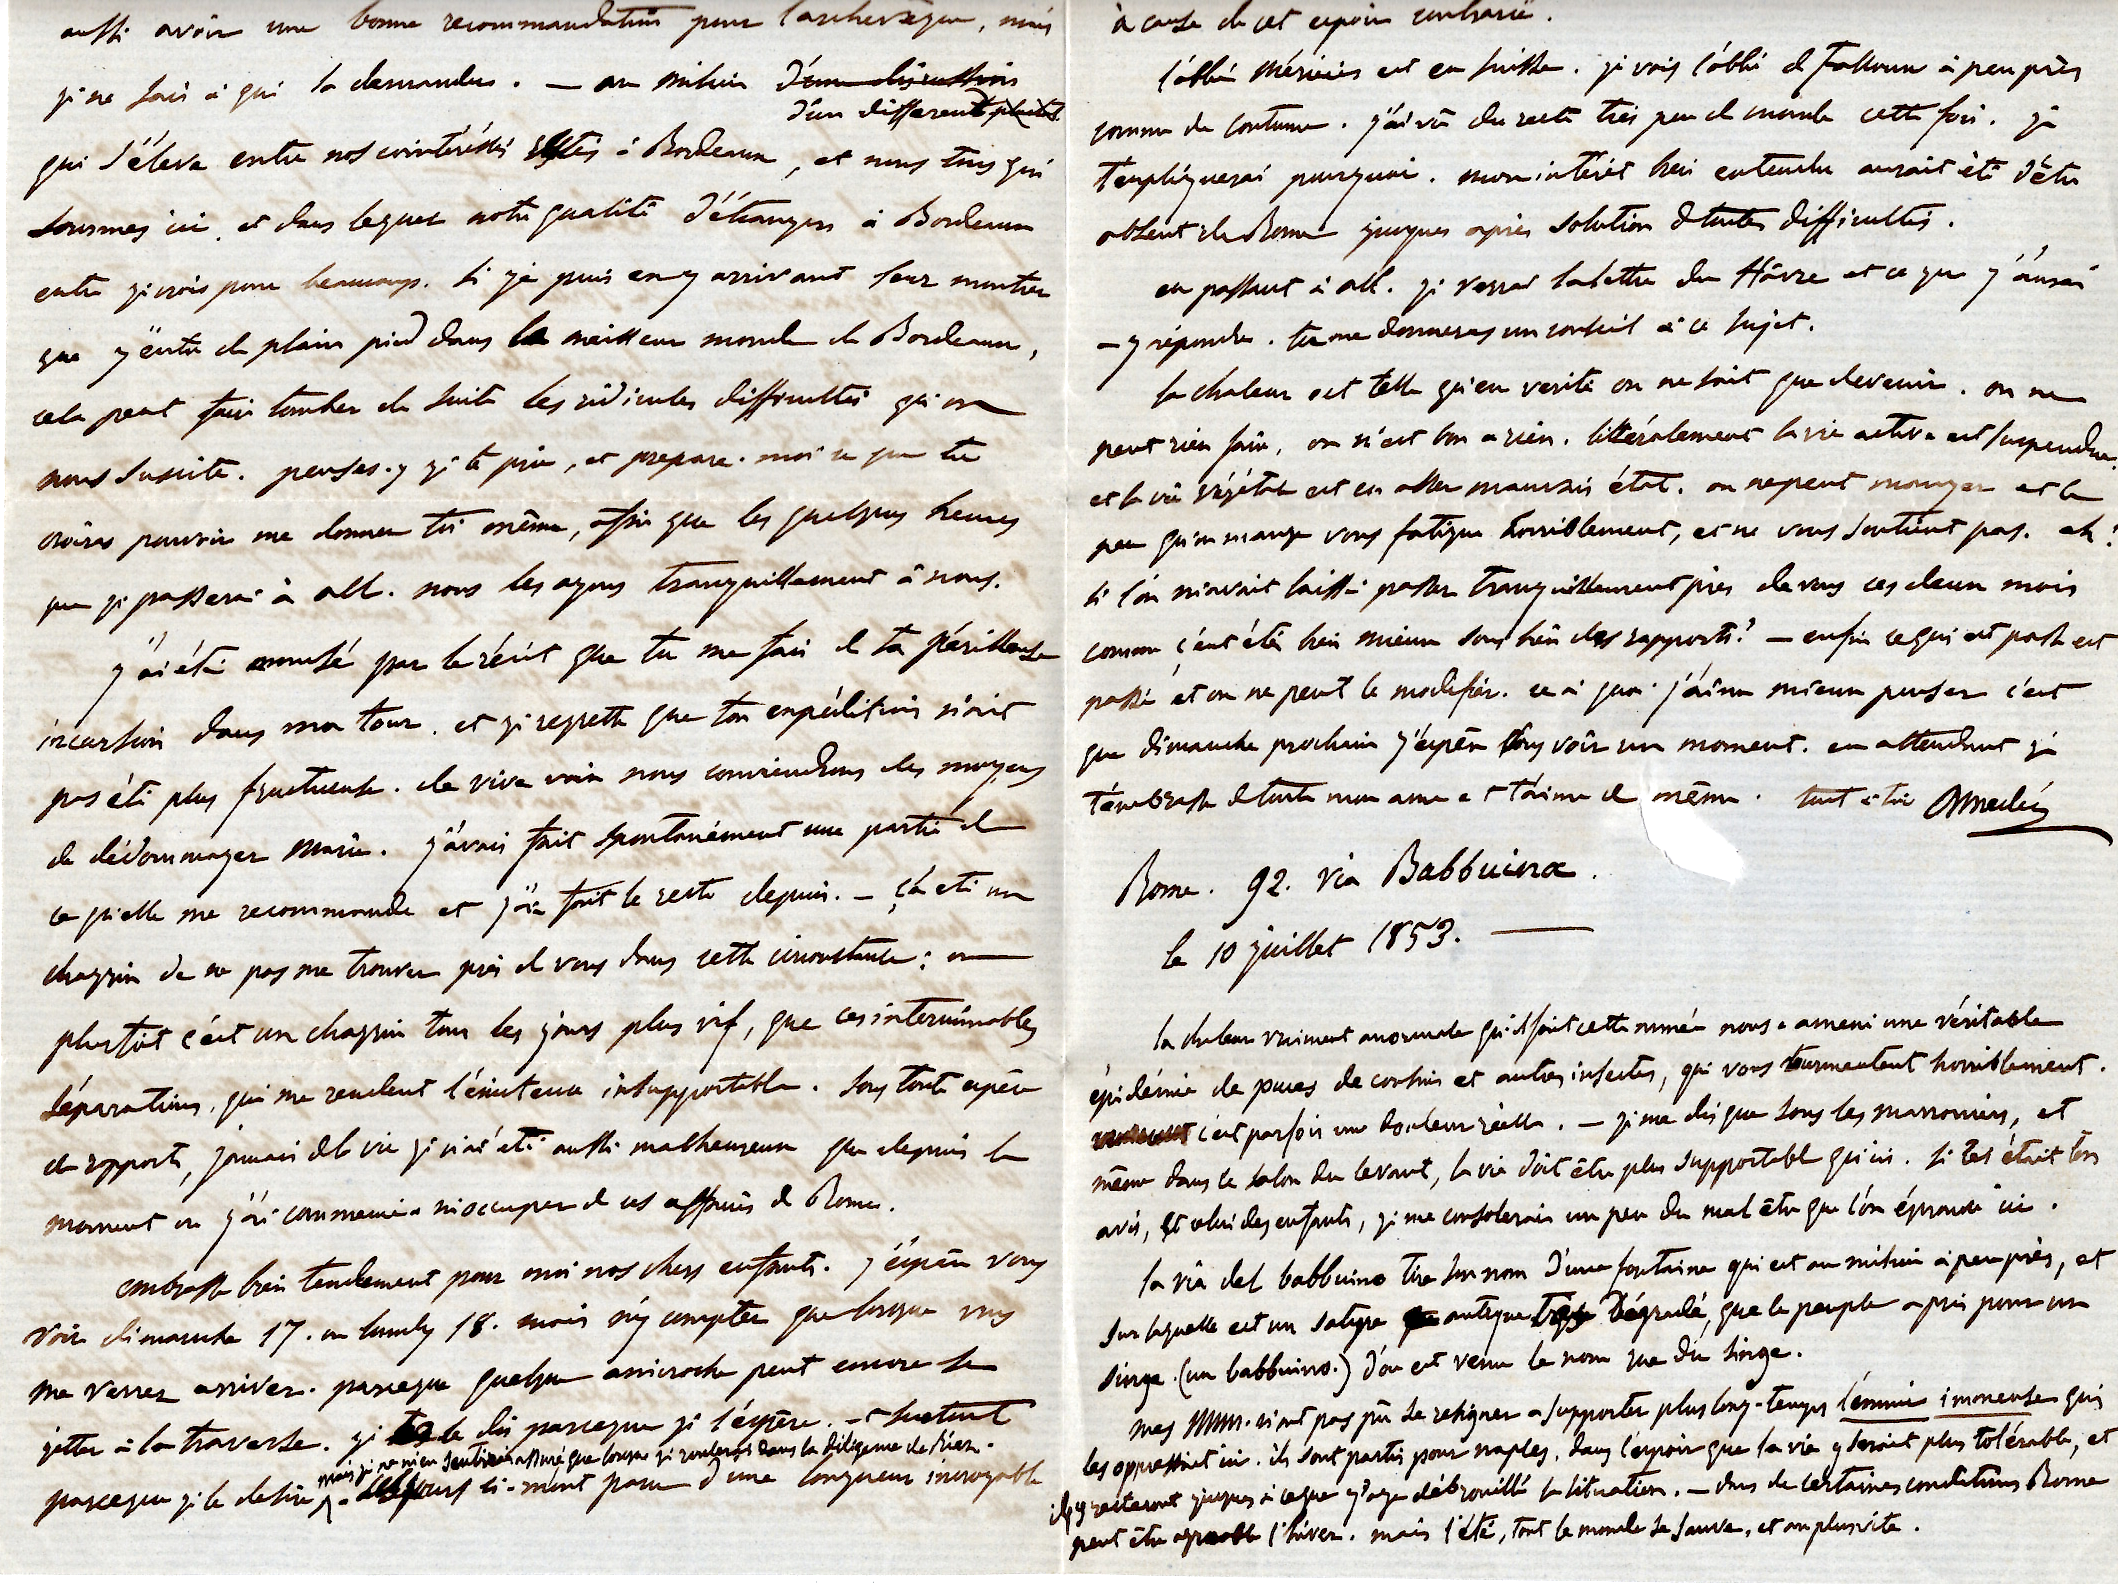 aussi avoir une bonne recommandation pour l'archevêque, mais
je ne sais à qui la demander. — au milieu d'une discussion
d'un différent
qui s'éleva entre nos cointéressés restés à Bordeaux, et nous tous qui
sommes ici, et dans lequel notre qualité d'étrangers à Bordeaux
entre je crois pour beaucoup. si je puis en y arrivant leur montrer
que j'entre de plain pied dans le meilleur monde de Bordeaux,
cela peut faire tomber de suite les ridicules difficultés qu'on
nous suscite. penses-y je te prie, et prepare-moi ce que tu
croiras pouvoir me donner toi même, afin que les quelques heures
que je passerai à all. nous les ayons tranquillement à nous.
j'ai été amusé par le récit que tu me fais de ta périlleuse
incursion dans ma tour, et je regrette que ton expédition n'ait
pas été plus fructueuse. de vive voix nous conviendrons des moyens
de dédommager Marie. j'avais fait spontanément une partie de
ce qu'elle me recommande et j'ai fait le reste depuis. — ça été un
chagrin de ne pas me trouver près de vous dans cette circonstance; ou
plustôt c'est un chagrin tous les jours plus vif, que ces interminables
séparations, qui me rendent l'existence insupportable. sous toute espèce
de rapports, jamais de la vie je n'ai été aussi malheureux que depuis le
moment où j'ai commencé a m'occuper de ces affaires de Rome.
embrasse bien tendrement pour moi nos chers enfants. j'espère vous
voir dimanche 17. ou lundy 18. mais n'y comptez que lorsque vous
me verrez arriver. parceque quelque anicroche peut encore se
jetter à la traverse. je te le dis parceque je l'espère. — et surtout
mais je ne m'en sentirai assuré que lorsque je roulerai dans la diligence de Riez.
parceque je le desire — les jours ci-m'ont paru d'une longueur incroyable
à cause de cet espoir contrarié.
l'abbé Mérinis est en suisse. je vois l'abbé de Falloux à peu près
comme de coutume. j'ai vu du reste très peu de monde cette fois. je
t'expliquerai pourquoi. mon intérêt bien entendu aurait été d'être
absent de Rome jusques après solution de toutes difficultés.
en passant à all. je verrai la lettre du Hâvre et ce que j'aurai
à y répondre. tu me donneras un conseil à ce sujet.
la chaleur est telle qu'en verité on ne sait que devenir. on ne
peut rien faire, on n'est bon a rien. littéralement la vie active est suspendue,
et la vie végétale est en assez mauvais état. on ne peut manger et le
peu qu'on mange vous fatigue horriblement, et ne vous soutient pas. ah!
si l'on m'avait laissé passer tranquillement près de vous ces deux mois
comme ç'eut été bien mieux sous bien des rapports! — enfin ce qui est passé est
passé et on ne peut le modifier. ce à quoi j'aime mieux penser c'est
que dimanche prochain j'espère vous voir un moment. en attendant je
t'embrasse de toute mon ame et t'aime de même. tout à toi Amédée
Rome. 92. via Babbuino.
le 10 juillet 1853. —
la chaleur vraiment anormale qu'il fait cette année nous a amené une véritable
épidémie de puces de cousins et autres insectes, qui vous tourmentent horriblement.
c'est parfois une douleur réelle. — je me dis que sous les marroniers, et
même dans le salon du levant, la vie doit être plus supportable qu'ici. si tel était ton
avis, et celui des enfants, je me consolerais un peu du mal être que l'on éprouve ici.
la via del babbuino tire son nom d'une fontaine qui est au milieu à peu près, et
sur laquelle est un satyre antique très dégradé, que le peuple a pris pour un
singe. (un babbuino.) d'où est venu le nom rue du singe.
mes MMrs. n'ont pas pu se resigner a supporter plus long-temps l'ennui immense qui
les oppressait ici. ils sont partis pour naples, dans l'espoir que la vie y serait plus tolérable, et
ils y resteront jusques à ce que j'aye débrouillé la situation. — dans de certaines conditions Rome
peut être agreable l'hiver. mais l'été, tout le monde se sauve, et au plus vite.